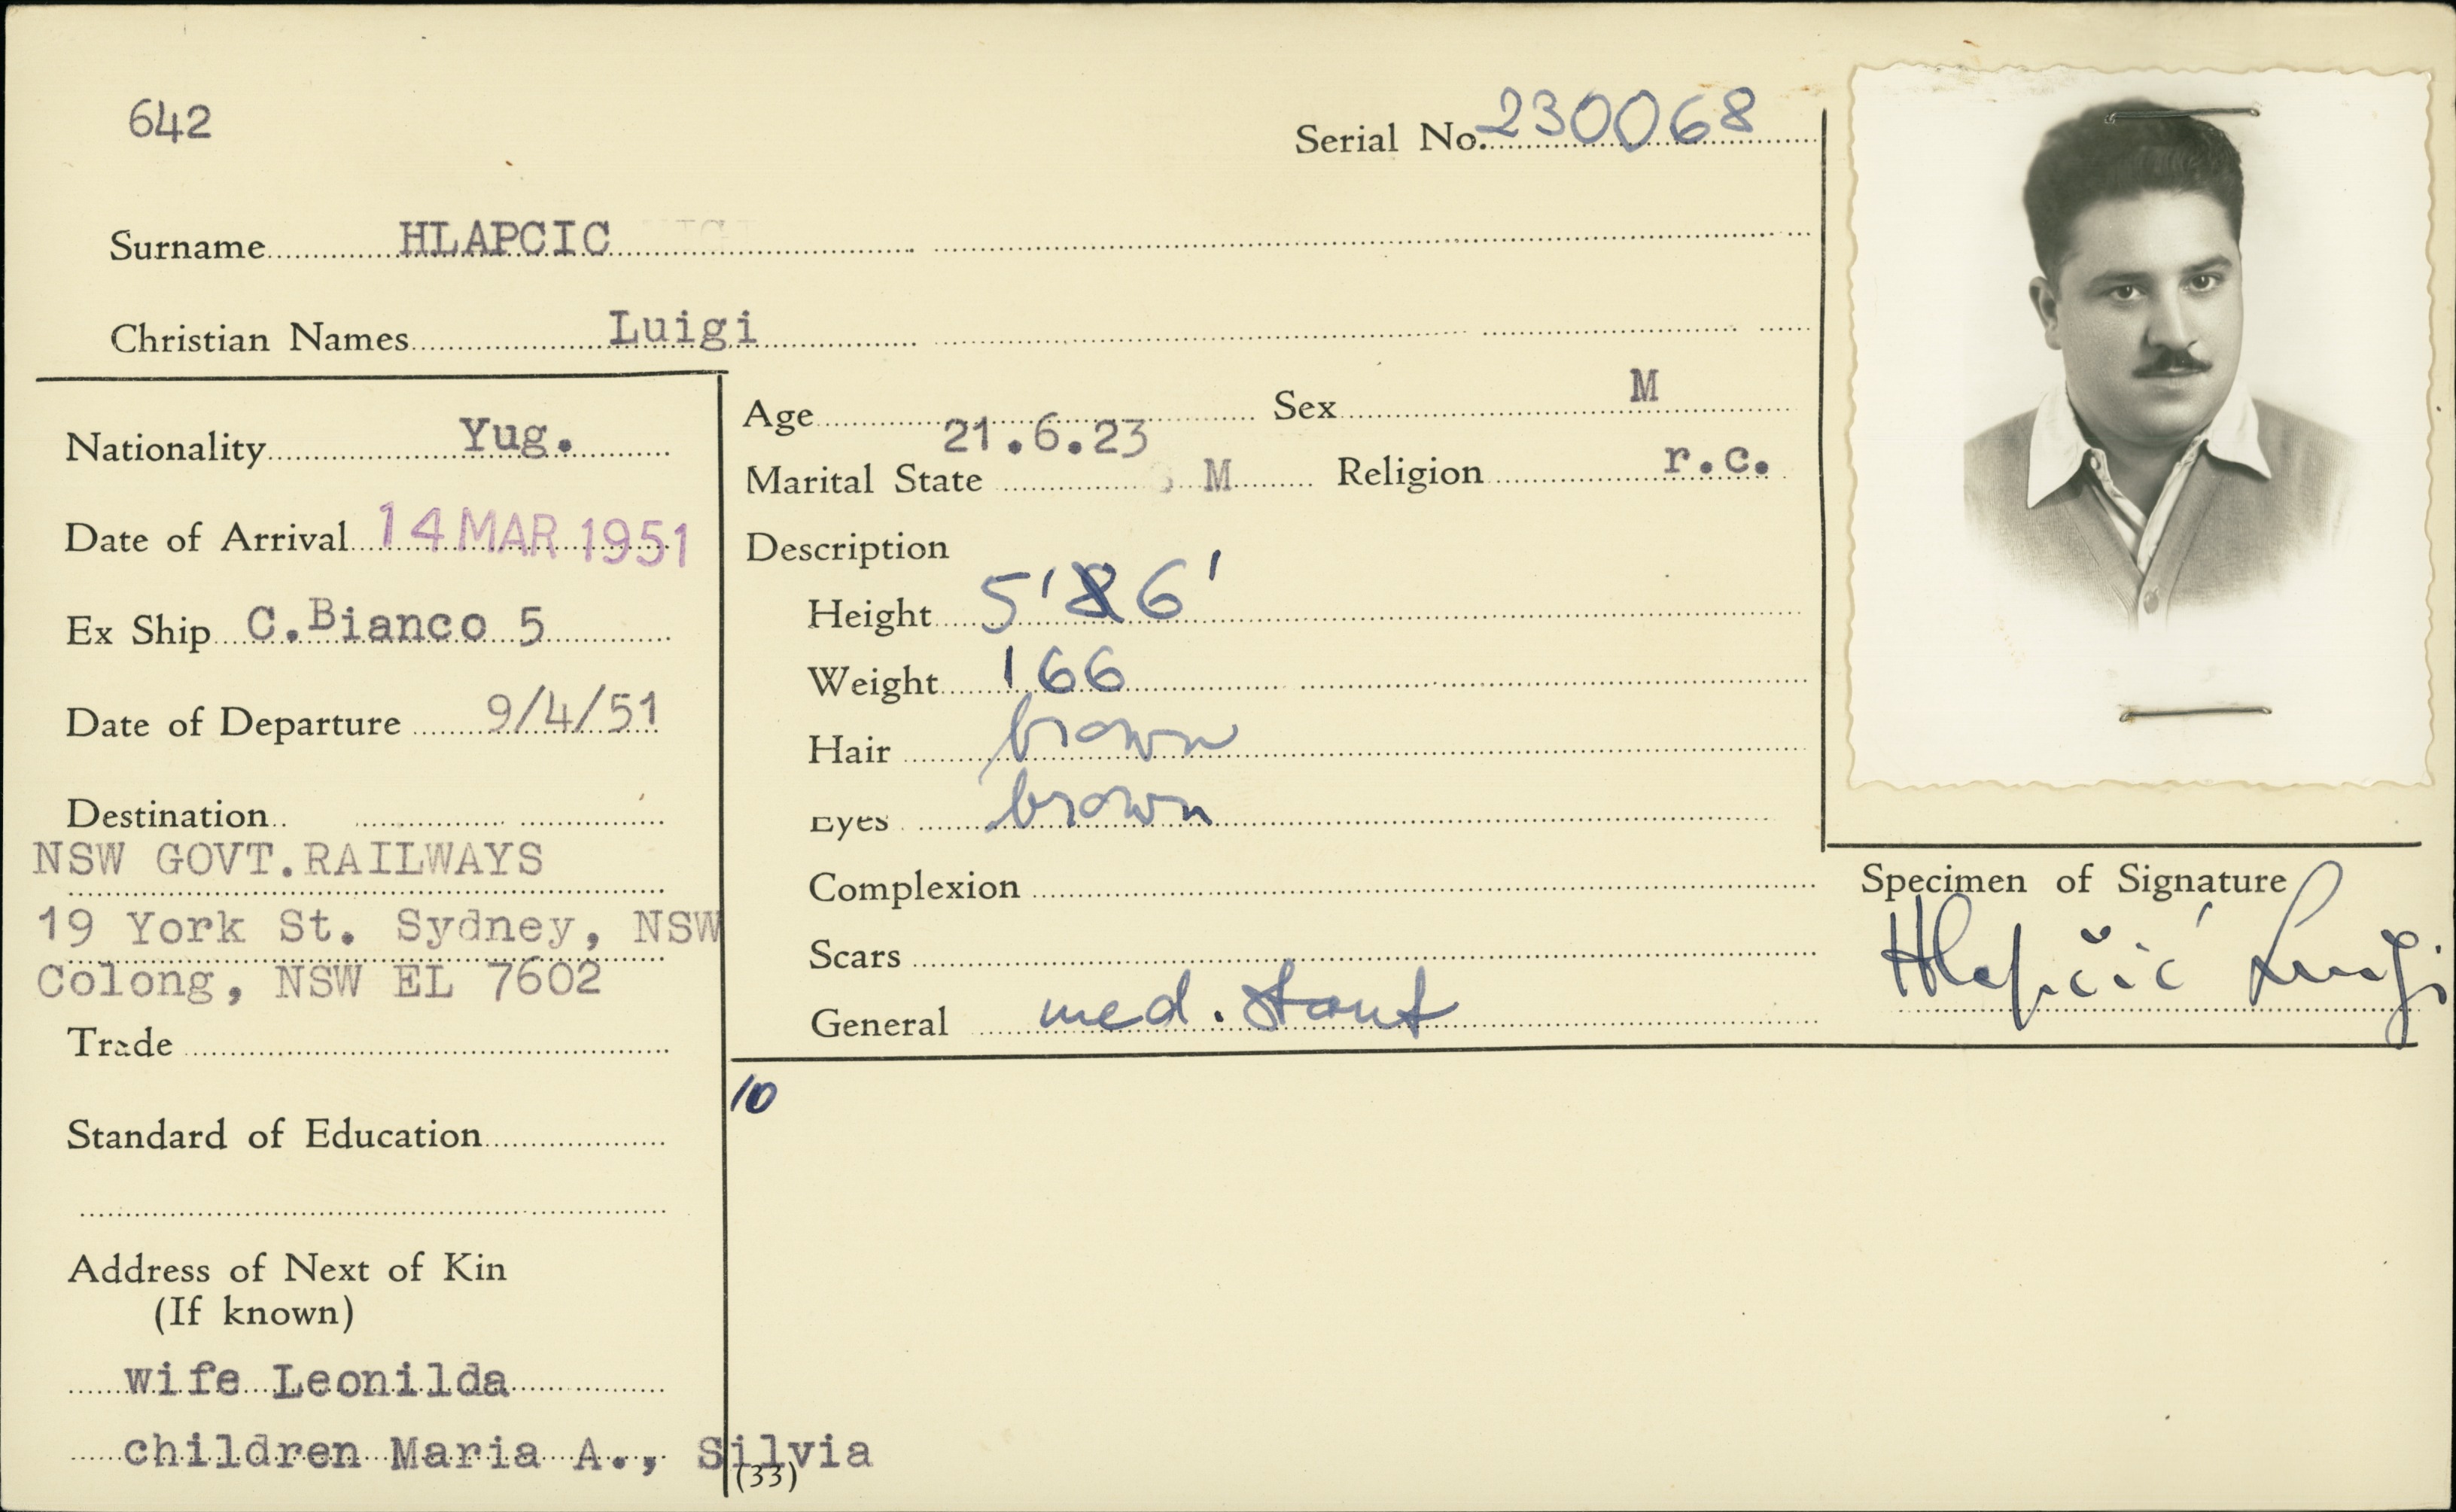 642
Serial No. 230068
Surname HLAPCIC
Christian Names Luigi
Nationality Yug.
Date of Arrival 14 MAR 1951
Ex Ship C.Bianco 5
Date of Departure 9/4/51
Destination
NSW GOVT.RAILWAYS
19 York St. Sydney, NSW
Colong, NSW EL 7602
Trade
Standard of Education
Address of Next of Kin
(If known)
wife Leonilda
children Maria A., Silvia
Age 21.6.23 Sex M
Marital State M Religion r.c.
Description
Height 5' 6'
Weight 166
Hair brown
Eyes brown
Complexion
Scars
General med. stout
10
(33)
Specimen of Signature
Hlapčić Luigi